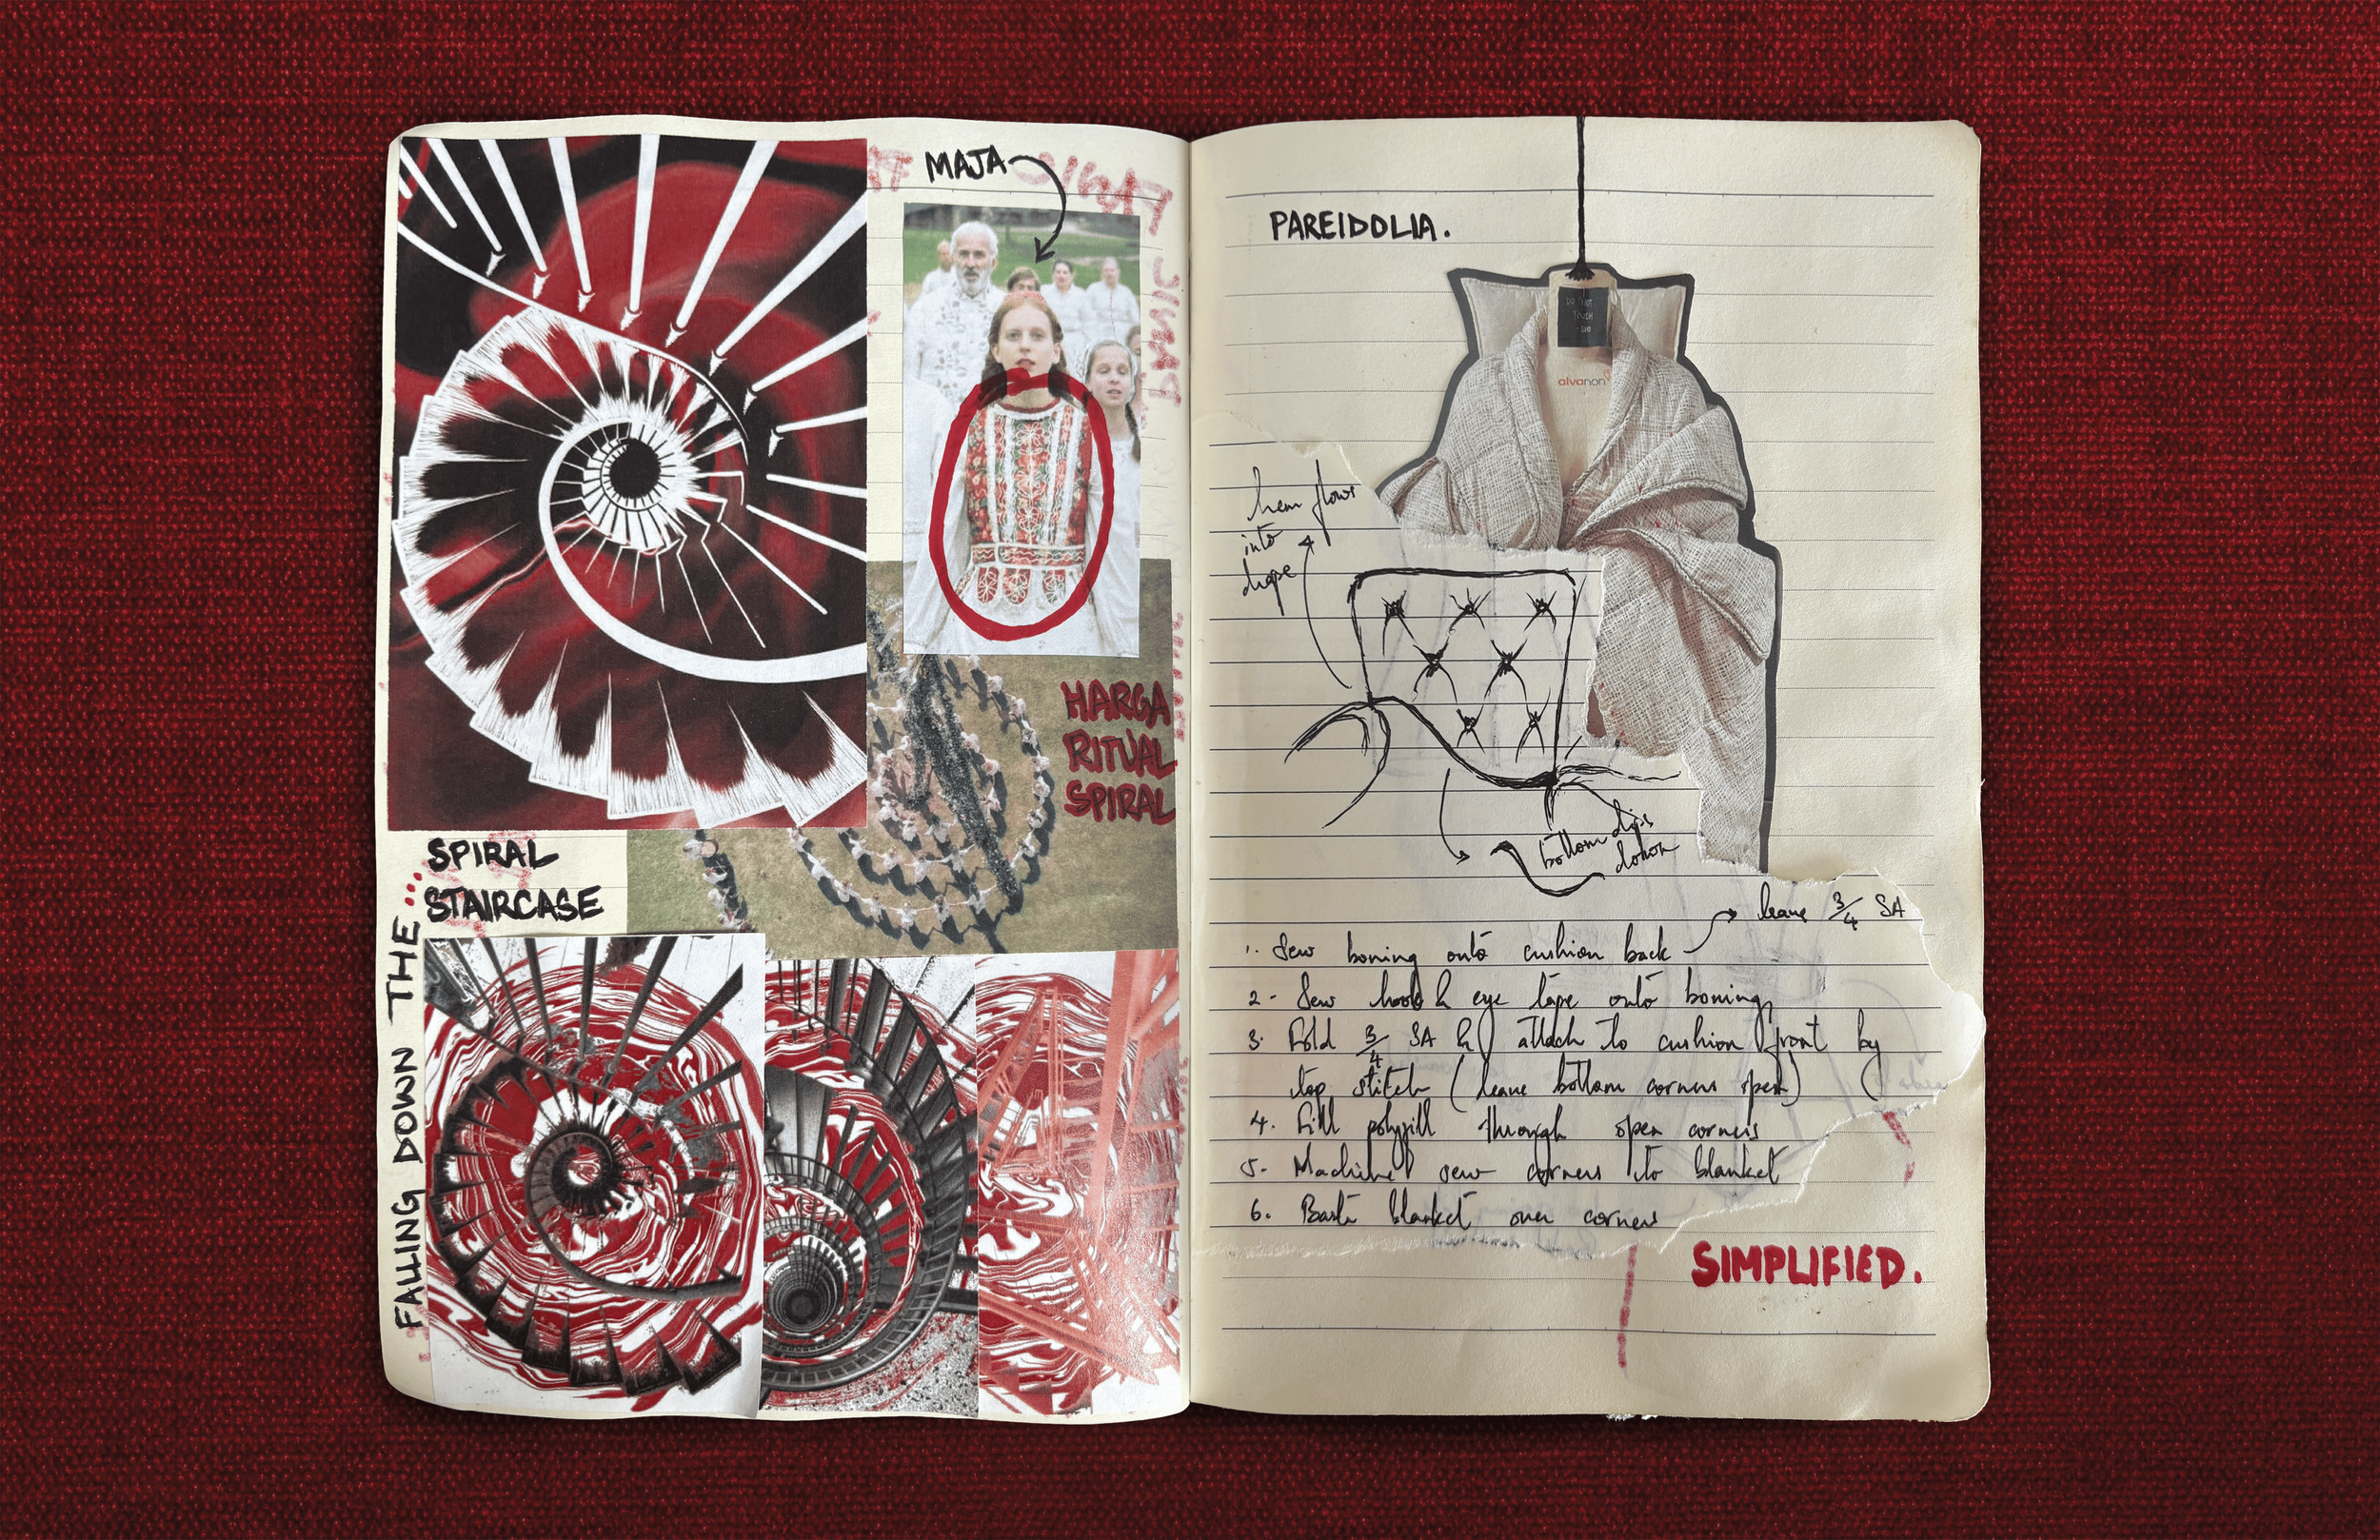 MAJA
HARGA
RITUAL
SPIRAL
SPIRAL
STAIRCASE
FALLING DOWN THE ...
PAREIDOLIA.
DO NOT
TOUCH
alvanon
hem flows
into
drape
bottom dips
down
leave 3/4 SA
1. Sew boning onto cushion back
2- Sew hook & eye tape onto boning
3. Fold 3/4 SA & attach to cushion front by
top stitch (leave bottom corners open)
4. Fill polyfill through open corners
5- Machine sew corners to blanket
6. Baste blanket over corners
SIMPLIFIED.